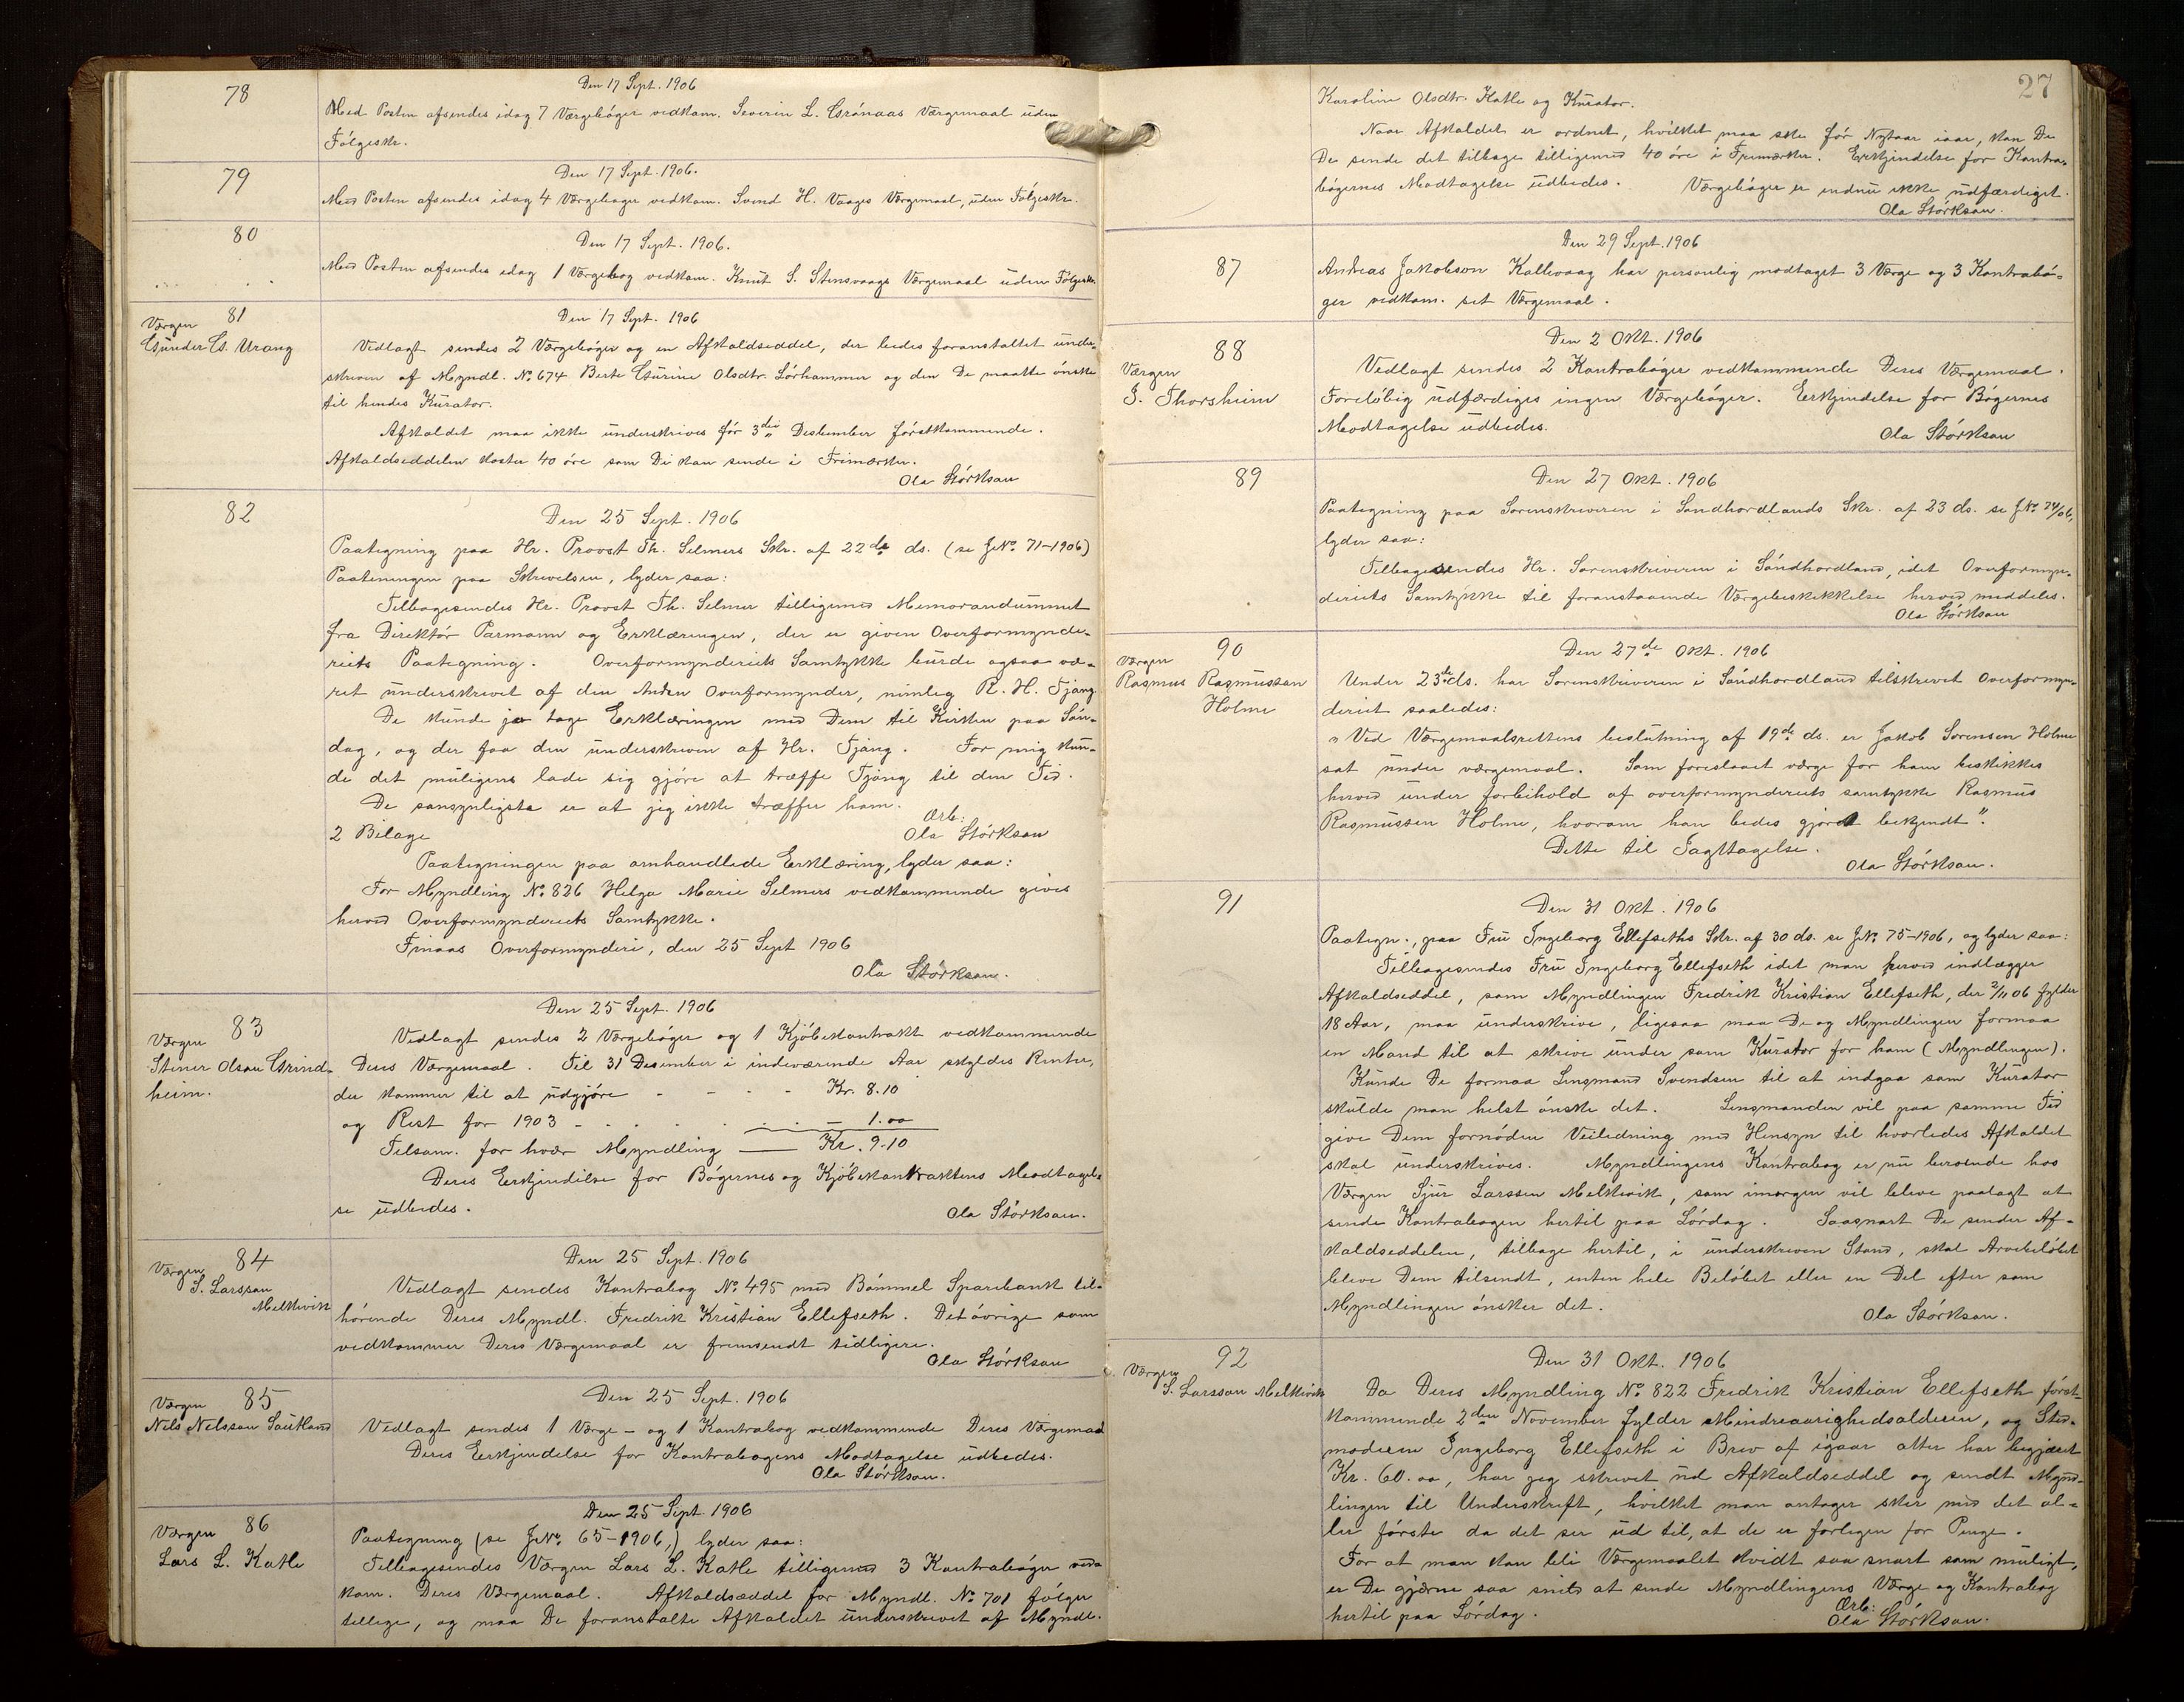 78
Den 17 Sept. 1906
Med Posten afsendes idag 7 Værgebøger vedkom. Severin L. Grønaas Værgemaal uden
Følgeskr.
79
Den 17 Sept. 1906.
Med Posten afsendes idag 4 Værgebøger vedkom. Svend H. Vaages Værgemaal, uden Følgeskr.
80
Den 17 Sept. 1906.
Med Posten afsendes idag 1 Værgebog vedkom. Knut S. Stensvaags Værgemaal uden Følgeskr.
81
Værgen
Gunder G. Urang
Den 17 Sept. 1906
Vedlagt sendes 2 Værgebøger og en Afkaldseddel, der bedes foranstaltet under-
skreven af Myndl. No 674 Berte Gurine Olsdtr. Lørhammer og den De maatte ønske
til hendes Kurator.
Afkaldet maa ikke underskrives før 3die Desember førstkommende.
Afkaldseddelen koster 40 øre som De kan sende i Frimærker.
Ola Størkson
82
Den 25 Sept. 1906
Paategning paa Hr. Provst Th. Selmers Skr. af 22de ds. (se J.No. 71-1906)
Paateningen paa Skrivelsen, lyder saa:
Tilbagesendes Hr. Provst Th. Selmer tilligemed Memorandummet
fra Direktør Parmann og Erklæringen, der er given Overformynde-
riets Paategning. Overformynderiets Samtykke burde ogsaa væ-
ret underskrevet af den Anden Overformynder, nimlig R. H. Tjøng
De kunde jo tage Erklæringen med Dem til Kirken paa Søn-
dag, og der faa den underskreven af Hr. Tjøng. For mig kun-
de det muligens lade sig gjøre at træffe Tjøng til den Tid.
De sansynligste er at jeg ikke træffer ham.
Ærb:
2 Bilage
Ola Størkson
Paategningen paa omhandlede Erklæring, lyder saa:
For Myndling No. 826 Helga Marie Selmers vedkommende gives
herved Overformynderiets Samtykke.
Finaas Overformynderi, den 25 Sept 1906
Ola Størkson.
83
Værgen
Steiner Olson Grind-
heim.
Den 25 Sept. 1906
Vedlagt sendes 2 Værgebøger og 1 Kjøbekontrakt vedkommende
Deres Værgemaal. Til 31 Desember i indeværende Aar skyldes Renter,
der kommer til at udgjøre - - - - Kr. 8.10
og Rest for 1903 - . . . . . . - 1.00
Tilsam. for hver Myndling —— Kr. 9.10
Deres Erkjendelse for Bøgernes og Kjøbekontraktens Modtagel-
se udbedes.
Ola Størkson.
84
Værgen
S. Larsson
Melkevik
Den 25 Sept. 1906
Vedlagt sendes Kontrabog No. 495 med Bømmel Sparebank til-
hørende Deres Myndl. Fredrik Kristian Ellefseth. Det øvrige som
vedkommer Deres Værgemaal er fremsendt tidligere.
Ola Størkson
85
Værgen
Nils Nelsson Sautland
Den 25 Sept. 1906
Vedlagt sendes 1 Værge - og 1 Kontrabog vedkommende Deres Værgemaal
Deres Erkjendelse for Kontrabogens Modtagelse udbedes.
Ola Størkson.
86
Værgen
Lars L. Katle
Den 25 Sept. 1906
Paategning (se J.No. 65-1906,) lyder saa:
Tilbagesendes Værgen Lars L. Katle tilligemed 3 Kontrabøger ved-
kom. Deres Værgemaal. Afkaldsæddel for Myndl. No. 701 følger
tillige, og maa De foranstalte Afkaldet underskrevet af Myndl.
27
Karoline Olsdtr. Katle og Kurator.
Naar Afkaldet er ordnet, hvilket maa ske før Nytaar iaar, kan De
De sende det tilbage tilligemed 40 øre i Frimærker. Erkjendelse for Kontra-
bøgernes Modtagelse udbedes. Værgebøger er endnu ikke udfærdiget.
Ola Størkson.
87
Den 29 Sept. 1906
Andreas Jakobson Kallevaag har personlig modtaget 3 Værge og 3 Kontrabø-
ger vedkom. sit Værgemaal.
88
Værgen
S. Thorsheim
Den 2 Okt. 1906
Vedlagt sendes 2 Kontrabøger vedkommende Deres Værgemaal.
Foreløbig udfærdiges ingen Værgebøger. Erkjendelse for Bøgernes
Modtagelse udbedes.
Ola Størkson
89
Den 27 Okt. 1906
Paategning paa Sorenskriveren i Søndhordlands Skr. af 23 ds. se J.No. 74/06,
lyder saa:
Tilbagesendes Hr. Sorenskriveren i Søndhordland, idet Overformyn-
deriets Samtykke til foranstaaende Værgebeskikkelse herved meddeles.
Ola Størkson
90
Værgen
Rasmus Rasmussen
Holme
Den 27de Okt. 1906
Under 23de ds. har Sorenskriveren i Søndhordland tilskrevet Overformyn-
deriet saaledes:
"Ved Værgemaalsrettens beslutning af 19de ds. er Jakob Sorensen Holme
sat under værgemaal. Som foreslaaet værge for ham beskikkes
herved under forbehold af overformynderiets samtykke Rasmus
Rasmussen Holme, hvorom han bedes gjort bekjendt".
Dette til Iagttagelse.
Ola Størkson.
91
Den 31 Okt. 1906
Paategn., paa Fru Ingeborg Ellefseths Skr. af 30 ds. se J.No. 75-1906, og lyder saa:
Tilbagesendes Fru Ingeborg Ellefseth idet man herved indlægger
Afkaldseddel, som Myndlingen Fredrik Kristian Ellefseth, der 2/11 06 fylder
18 Aar, maa underskrive, ligesaa maa De og Myndlingen formaa
en Mand til at skrive under som Kurator for ham (Myndlingen).
Kunde De formaa Lensmand Svendsen til at indgaa som Kurator
skulde man helst ønske det. Lensmanden vil paa samme Tid
give Dem fornøden Veiledning med Hensyn til hvorledes Afkaldet
skal underskrives. Myndlingens Kontrabog er nu beroende hos
Værgen Sjur Larssen Melkevik, som imorgen vil bleve paalagt at
sende Kontrabogen hertil paa Lørdag. Saasnart De sender Af-
kaldseddelen, tilbage hertil, i underskreven Stand, skal Arvebeløbet
bleve Dem tilsendt, enten hele Beløbet eller en Del efter som
Myndlingen ønsker det.
Ola Størkson.
92
Værgen
S. Larsson Melkevik
Den 31 Okt. 1906
Da Deres Myndling No. 822 Fredrik Kristian Ellefseth først-
kommende 2den November fylder Mindreaarighedsalderen, og Sted-
moderen Ingeborg Ellefseth i Brev af igaar atter har begjæret
Kr. 60.00, har jeg skrevet ud Afkaldseddel og sendt Mynd-
lingen til Underskrift, hvilket man antager sker med det al-
ler første da det ser ud til, at de er forlegen for Penge.
For at man kan bli Værgemaalet kvidt saa snart som muligt,
er De gjerne saa snild at sende Myndlingens Værge og Kontrabog
hertil paa Lørdag.
Ærb:
Ola Størkson.